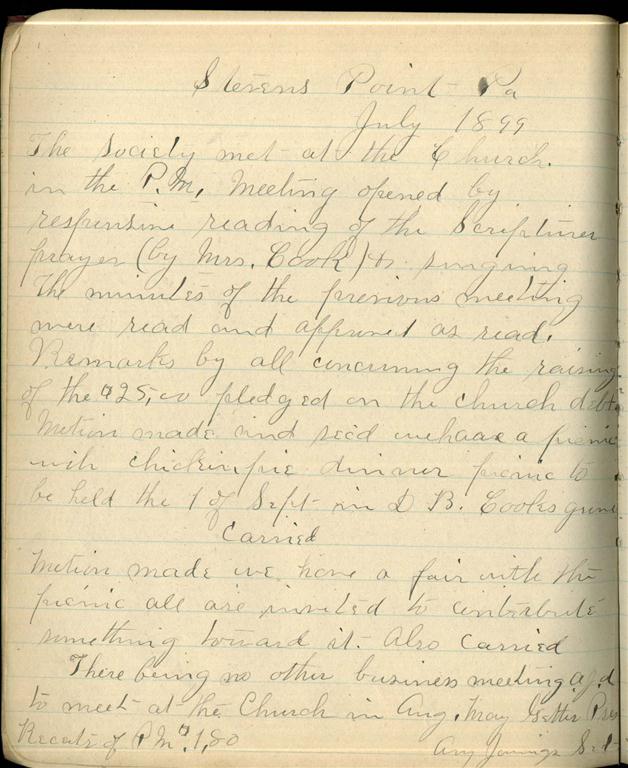 Stevens Point Pa
July 1899
The society met at the Church.
in the P.M. Meeting opened by
responsive reading of the Scriptures
prayer (by Mrs. Cook) & singing
The minutes of the previous meeting
were read and approved as read.
Remarks by all concerning the raising
of the $25,00 pledged on the church debt
Motion made and sec'd we have a picnic
with chickenpie dinner picnic to
be held the 1 of Sept in D B. Cooks grove
Carried
Motion made we have a fair with the
picnic all are invited to contribute
something toward it. Also Carried
There being no other business meeting ajd
to meet at the Church in Aug. May Pres
of P M $1,80
Sec